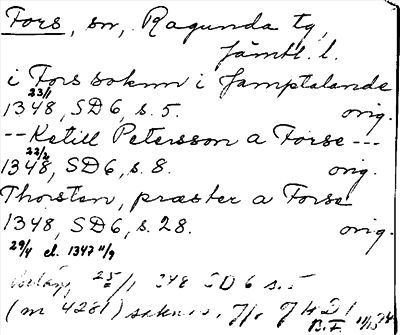 Fors, sn, Ragunda tg,
Jämtl. l.
i Fors soknn i Jamptalande
23/1
1348, SD6, s. 5. orig.
-- Ketill Petersson a Forse ---
22/2
1348, SD6, s. 8. orig.
Thorsten, præster a Forse
1348, SD6, s. 28. orig.
29/4 el. 1347 11/9
348 SD6 s. 5
(nr 4281) saknas. Jfr JHD I
B.F.